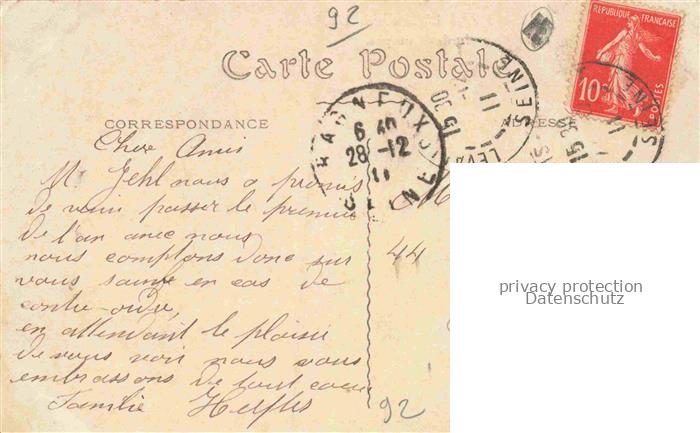 92
Carte Postale
RÉPUBLIQUE FRANÇAISE
10
POSTES
CORRESPONDANCE
ADRESSE
BAGNEUX
6 40
28 -12
11
SEINE
15 30
11
SEINE
15 30
Chers Amis
Mr Jehl nous a promis
de venir passer le premier
de l'an avec nous
nous comptons donc sur
vous sauf en cas de
contre-ordre,
en attendant le plaisir
de vous voir nous vous
embrassons de tout coeur
Famille
44
92
privacy protection
Datenschutz